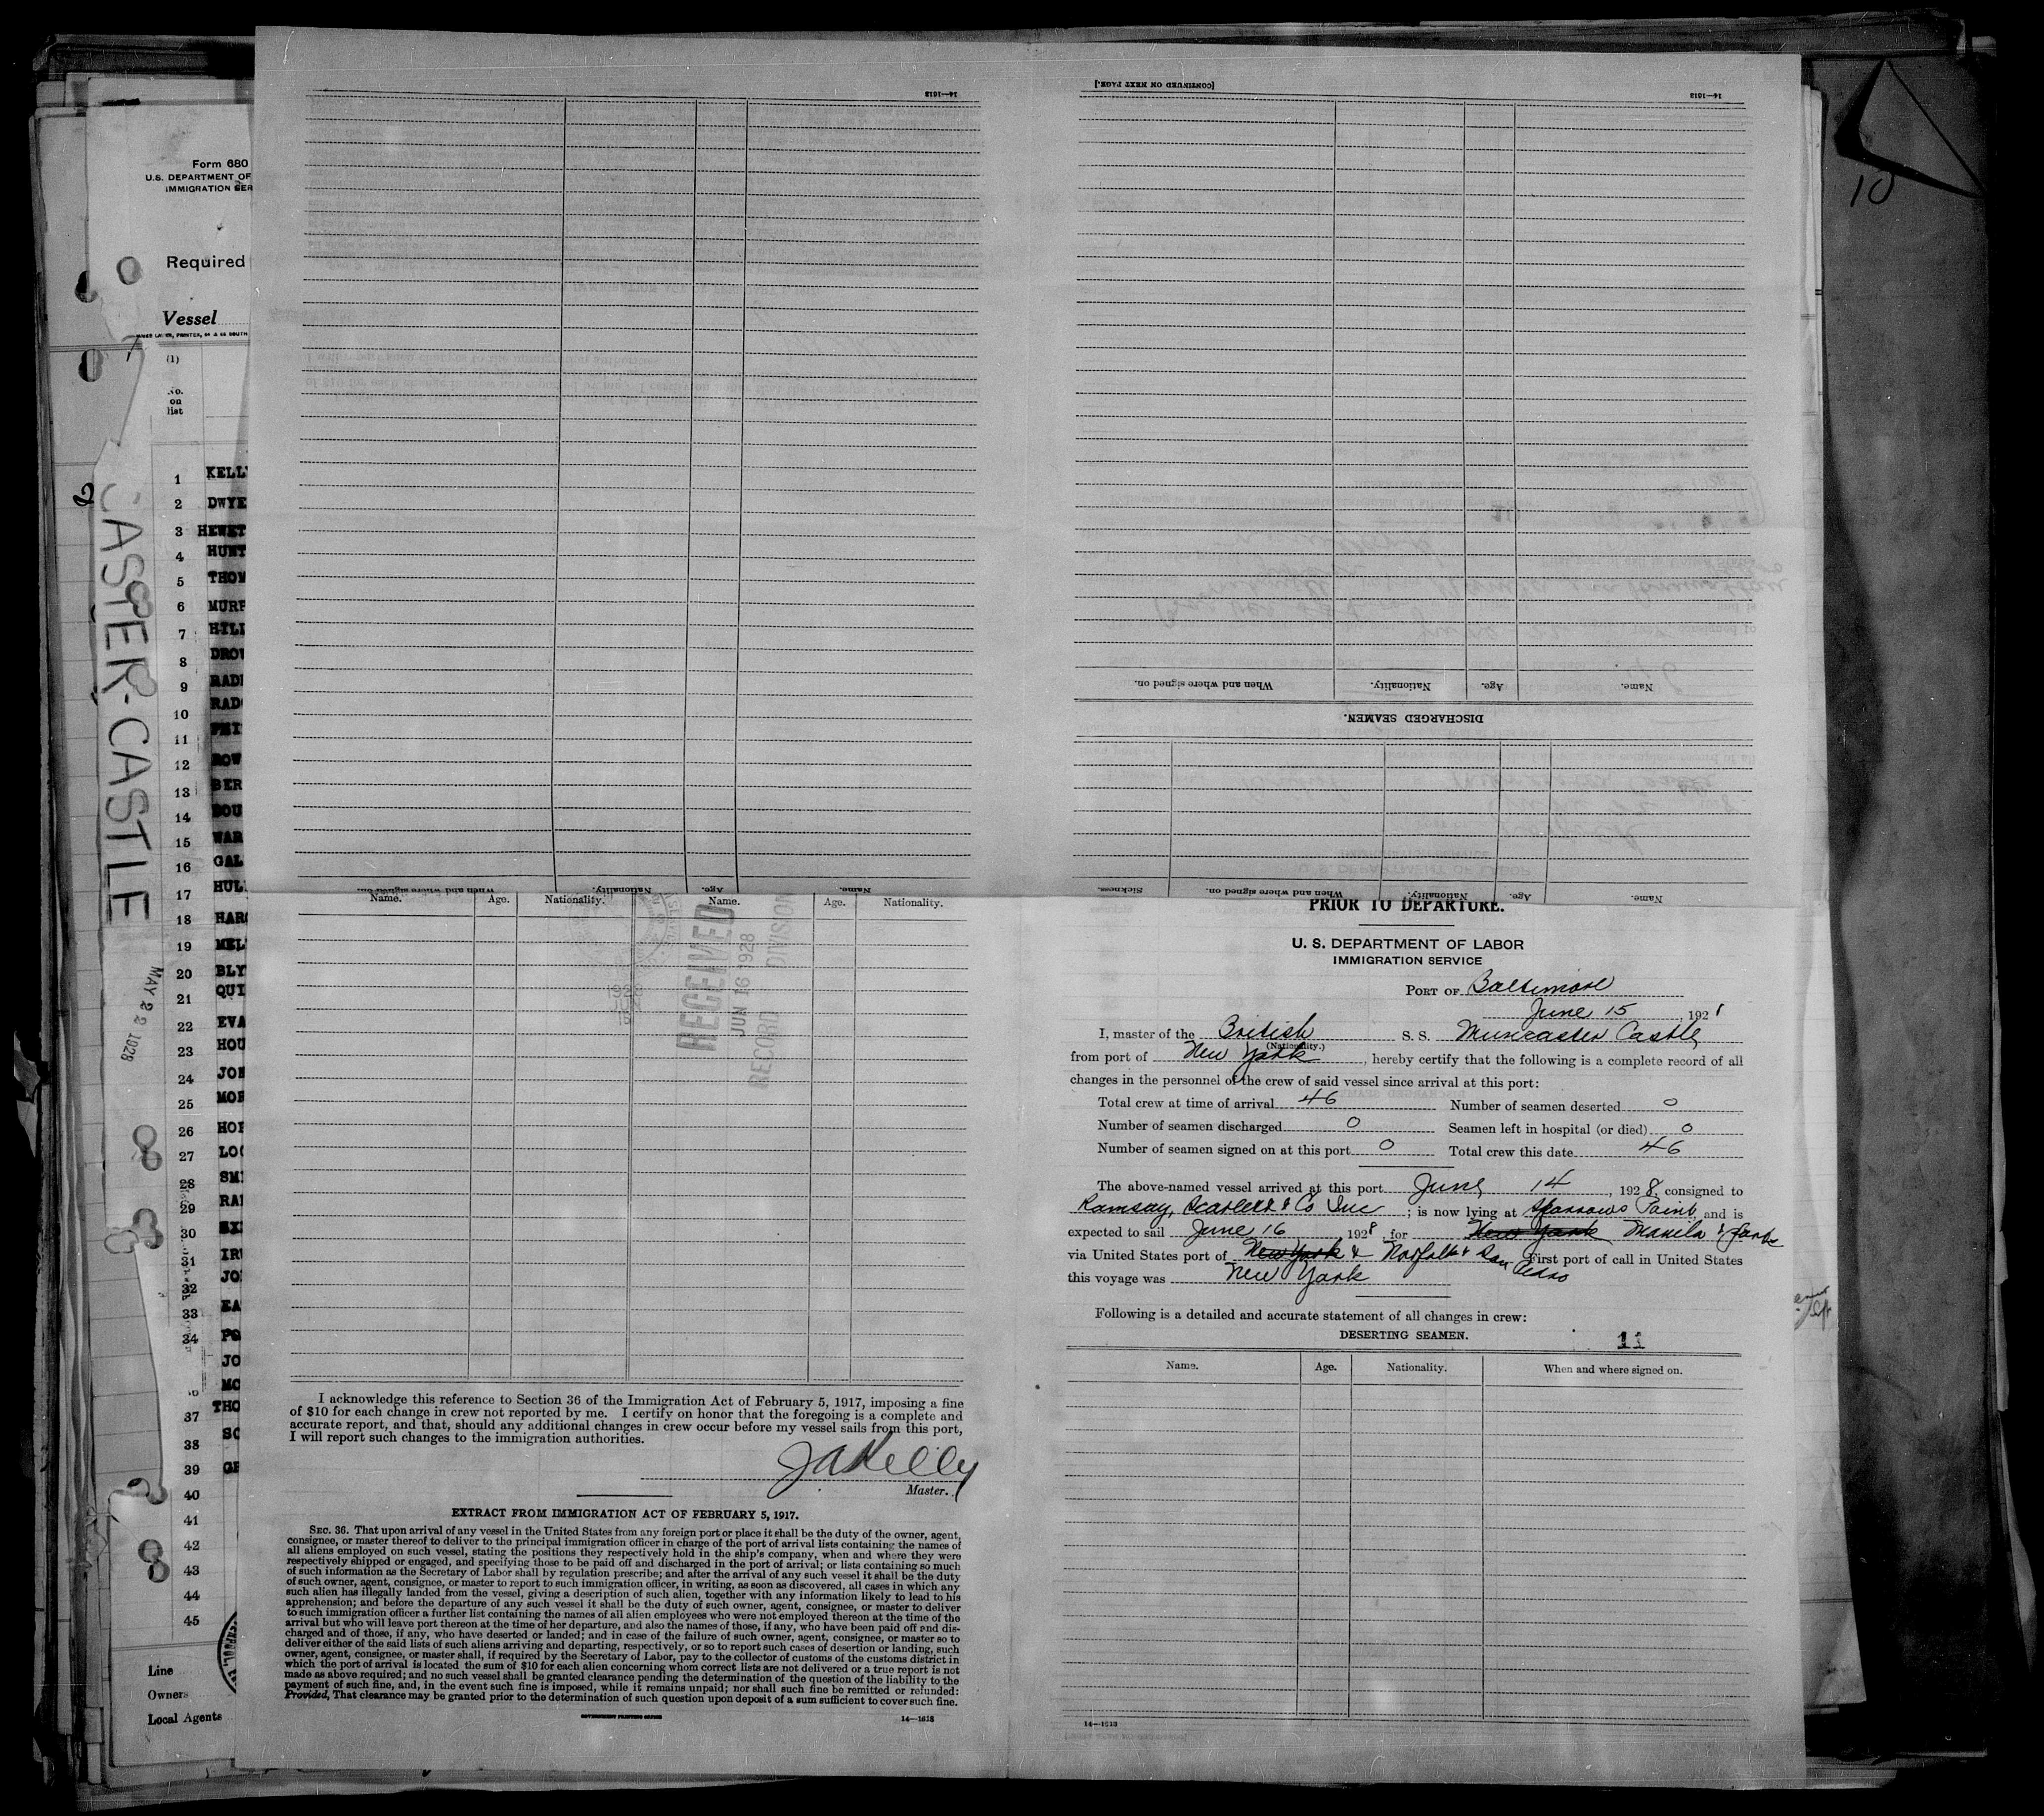 10
Form 680
U.S. DEPARTMENT OF
IMMIGRATION SER
Required
Vessel
(1)
No.
on
list
1 KELLY
2 DWYE
3 HEWET
4 HUNT
5 THOM
6 MURP
7 HILL
8 DROW
9 RADI
10 RADC
11
12 ROW
13 BER
14 BOU
15 WAR
16 GAL
17 HUL
18 HARG
19 MEL
20 BLY
21 QUI
22 EVA
23 HOU
24 JON
25 MOR
26 HOP
27 LOC
28 SMI
29 RAI
30
31 IRV
32 JO
33 EA
34 PO
JO
MC
37 THO
38 SC
39 GR
40
41
42
43
44
45
Line
Owners
Local Agents
CASTER-CASTLE
MAY 22 1928
14—1613
When and where signed on. Nationality. Age. Name.
[CONTINUED ON NEXT PAGE.]
14—1613
When and where signed on. Nationality. Age. Name.
DISCHARGED SEAMEN.
Sickness. When and where signed on. Nationality. Age. Name.
Name. Age. Nationality. Name. Age. Nationality.
RECEIVED
JUN 16 1928
RECORD DIVISION
I acknowledge this reference to Section 36 of the Immigration Act of February 5, 1917, imposing a fine
of $10 for each change in crew not reported by me. I certify on honor that the foregoing is a complete and
accurate report, and that, should any additional changes in crew occur before my vessel sails from this port,
I will report such changes to the immigration authorities.
JAKelly
Master.
EXTRACT FROM IMMIGRATION ACT OF FEBRUARY 5, 1917.
SEC. 36. That upon arrival of any vessel in the United States from any foreign port or place it shall be the duty of the owner, agent,
consignee, or master thereof to deliver to the principal immigration officer in charge of the port of arrival lists containing the names of
all aliens employed on such vessel, stating the positions they respectively hold in the ship's company, when and where they were
respectively shipped or engaged, and specifying those to be paid off and discharged in the port of arrival; or lists containing so much
of such information as the Secretary of Labor shall by regulation prescribe; and after the arrival of any such vessel it shall be the duty
of such owner, agent, consignee, or master to report to such immigration officer, in writing, as soon as discovered, all cases in which any
such alien has illegally landed from the vessel, giving a description of such alien, together with any information likely to lead to his
apprehension; and before the departure of any such vessel it shall be the duty of such owner, agent, consignee, or master to deliver
to such immigration officer a further list containing the names of all alien employees who were not employed thereon at the time of the
arrival but who will leave port thereon at the time of her departure, and also the names of those, if any, who have been paid off and dis-
charged and of those, if any, who have deserted or landed; and in case of the failure of such owner, agent, consignee, or master so to
deliver either of the said lists of such aliens arriving and departing, respectively, or so to report such cases of desertion or landing, such
owner, agent, consignee, or master shall, if required by the Secretary of Labor, pay to the collector of customs of the customs district in
which the port of arrival is located the sum of $10 for each alien concerning whom correct lists are not delivered or a true report is not
made as above required; and no such vessel shall be granted clearance pending the determination of the question of the liability to the
payment of such fine, and, in the event such fine is imposed, while it remains unpaid; nor shall such fine be remitted or refunded:
Provided, That clearance may be granted prior to the determination of such question upon deposit of a sum sufficient to cover such fine.
GOVERNMENT PRINTING OFFICE
14—1613
PRIOR TO DEPARTURE.
U. S. DEPARTMENT OF LABOR
IMMIGRATION SERVICE
PORT OF Baltimore
June 15, 1928
I, master of the British S. S. Muncaster Castle
(Nationality.)
from port of New York, hereby certify that the following is a complete record of all
changes in the personnel of the crew of said vessel since arrival at this port:
Total crew at time of arrival 46 Number of seamen deserted 0
Number of seamen discharged 0 Seamen left in hospital (or died) 0
Number of seamen signed on at this port 0 Total crew this date 46
The above-named vessel arrived at this port June 14, 1928, consigned to
Ramsay, Scarlett & Co Inc; is now lying at Sparrows Point, and is
expected to sail June 16 1928, for New York Manila &
via United States port of New York & Norfolk & San Pedro First port of call in United States
this voyage was New York
Following is a detailed and accurate statement of all changes in crew:
DESERTING SEAMEN. 11
Name. Age. Nationality. When and where signed on.
14—1613